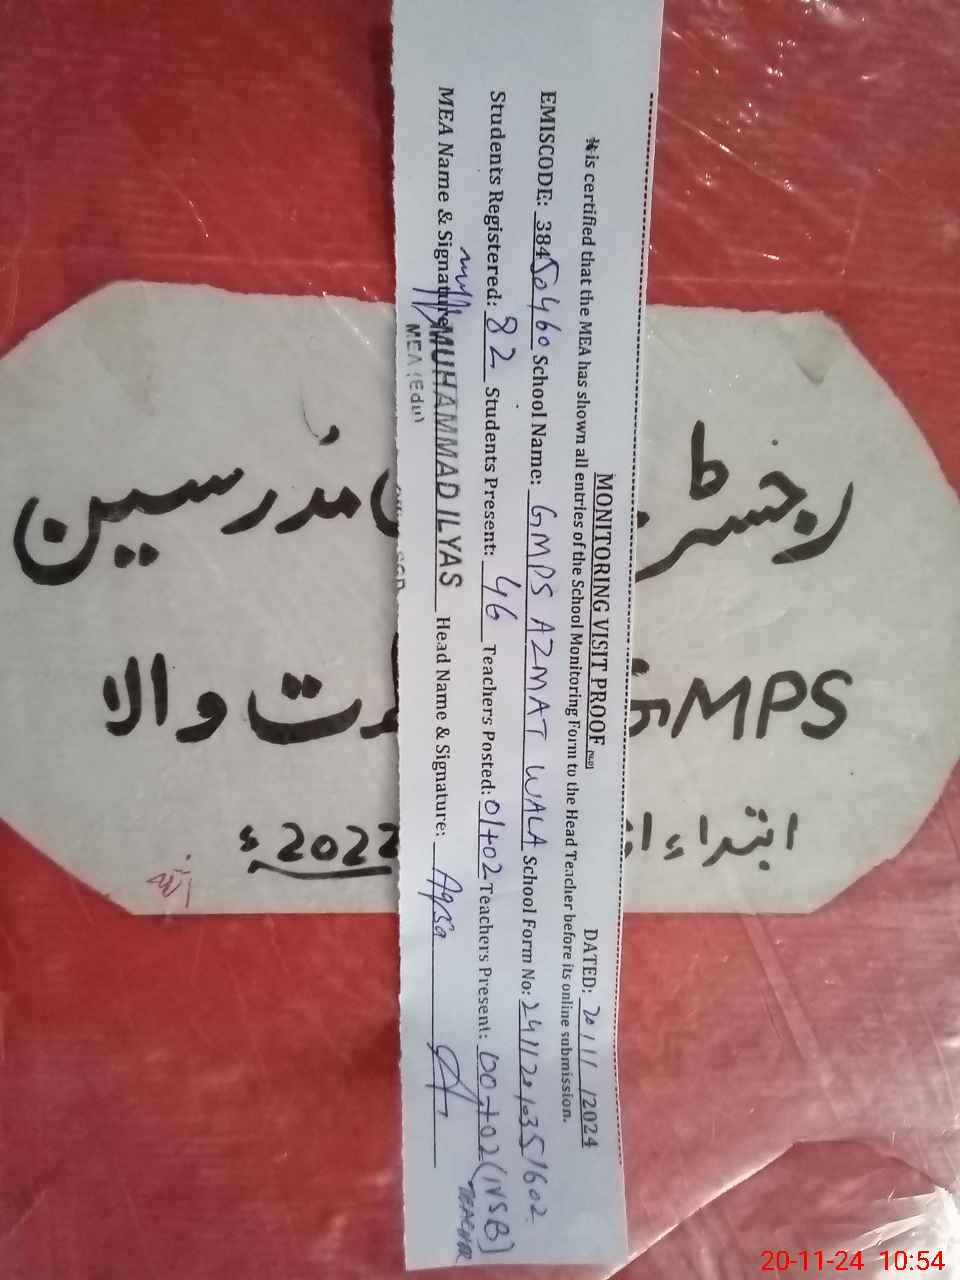 MONITORING VISIT PROOF
DATED: 20/11/2024
It is certified that the MEA has shown all entries of the School Monitoring Form to the Head Teacher before its online submission.
EMISCODE: 38450460 School Name: GMPS AZMAT WALA School Form No: 
Students Registered: 82 Students Present: 46 Teachers Posted: 01+02 Teachers Present: 00+02 (NSB) TEACHER
MEA Name & Signature MUHAMMAD ILYAS Head Name & Signature: Aqsa
MEA (Edu)
مدرسین
GMPS
والا
ابتداء
2022
20-11-24 10:54